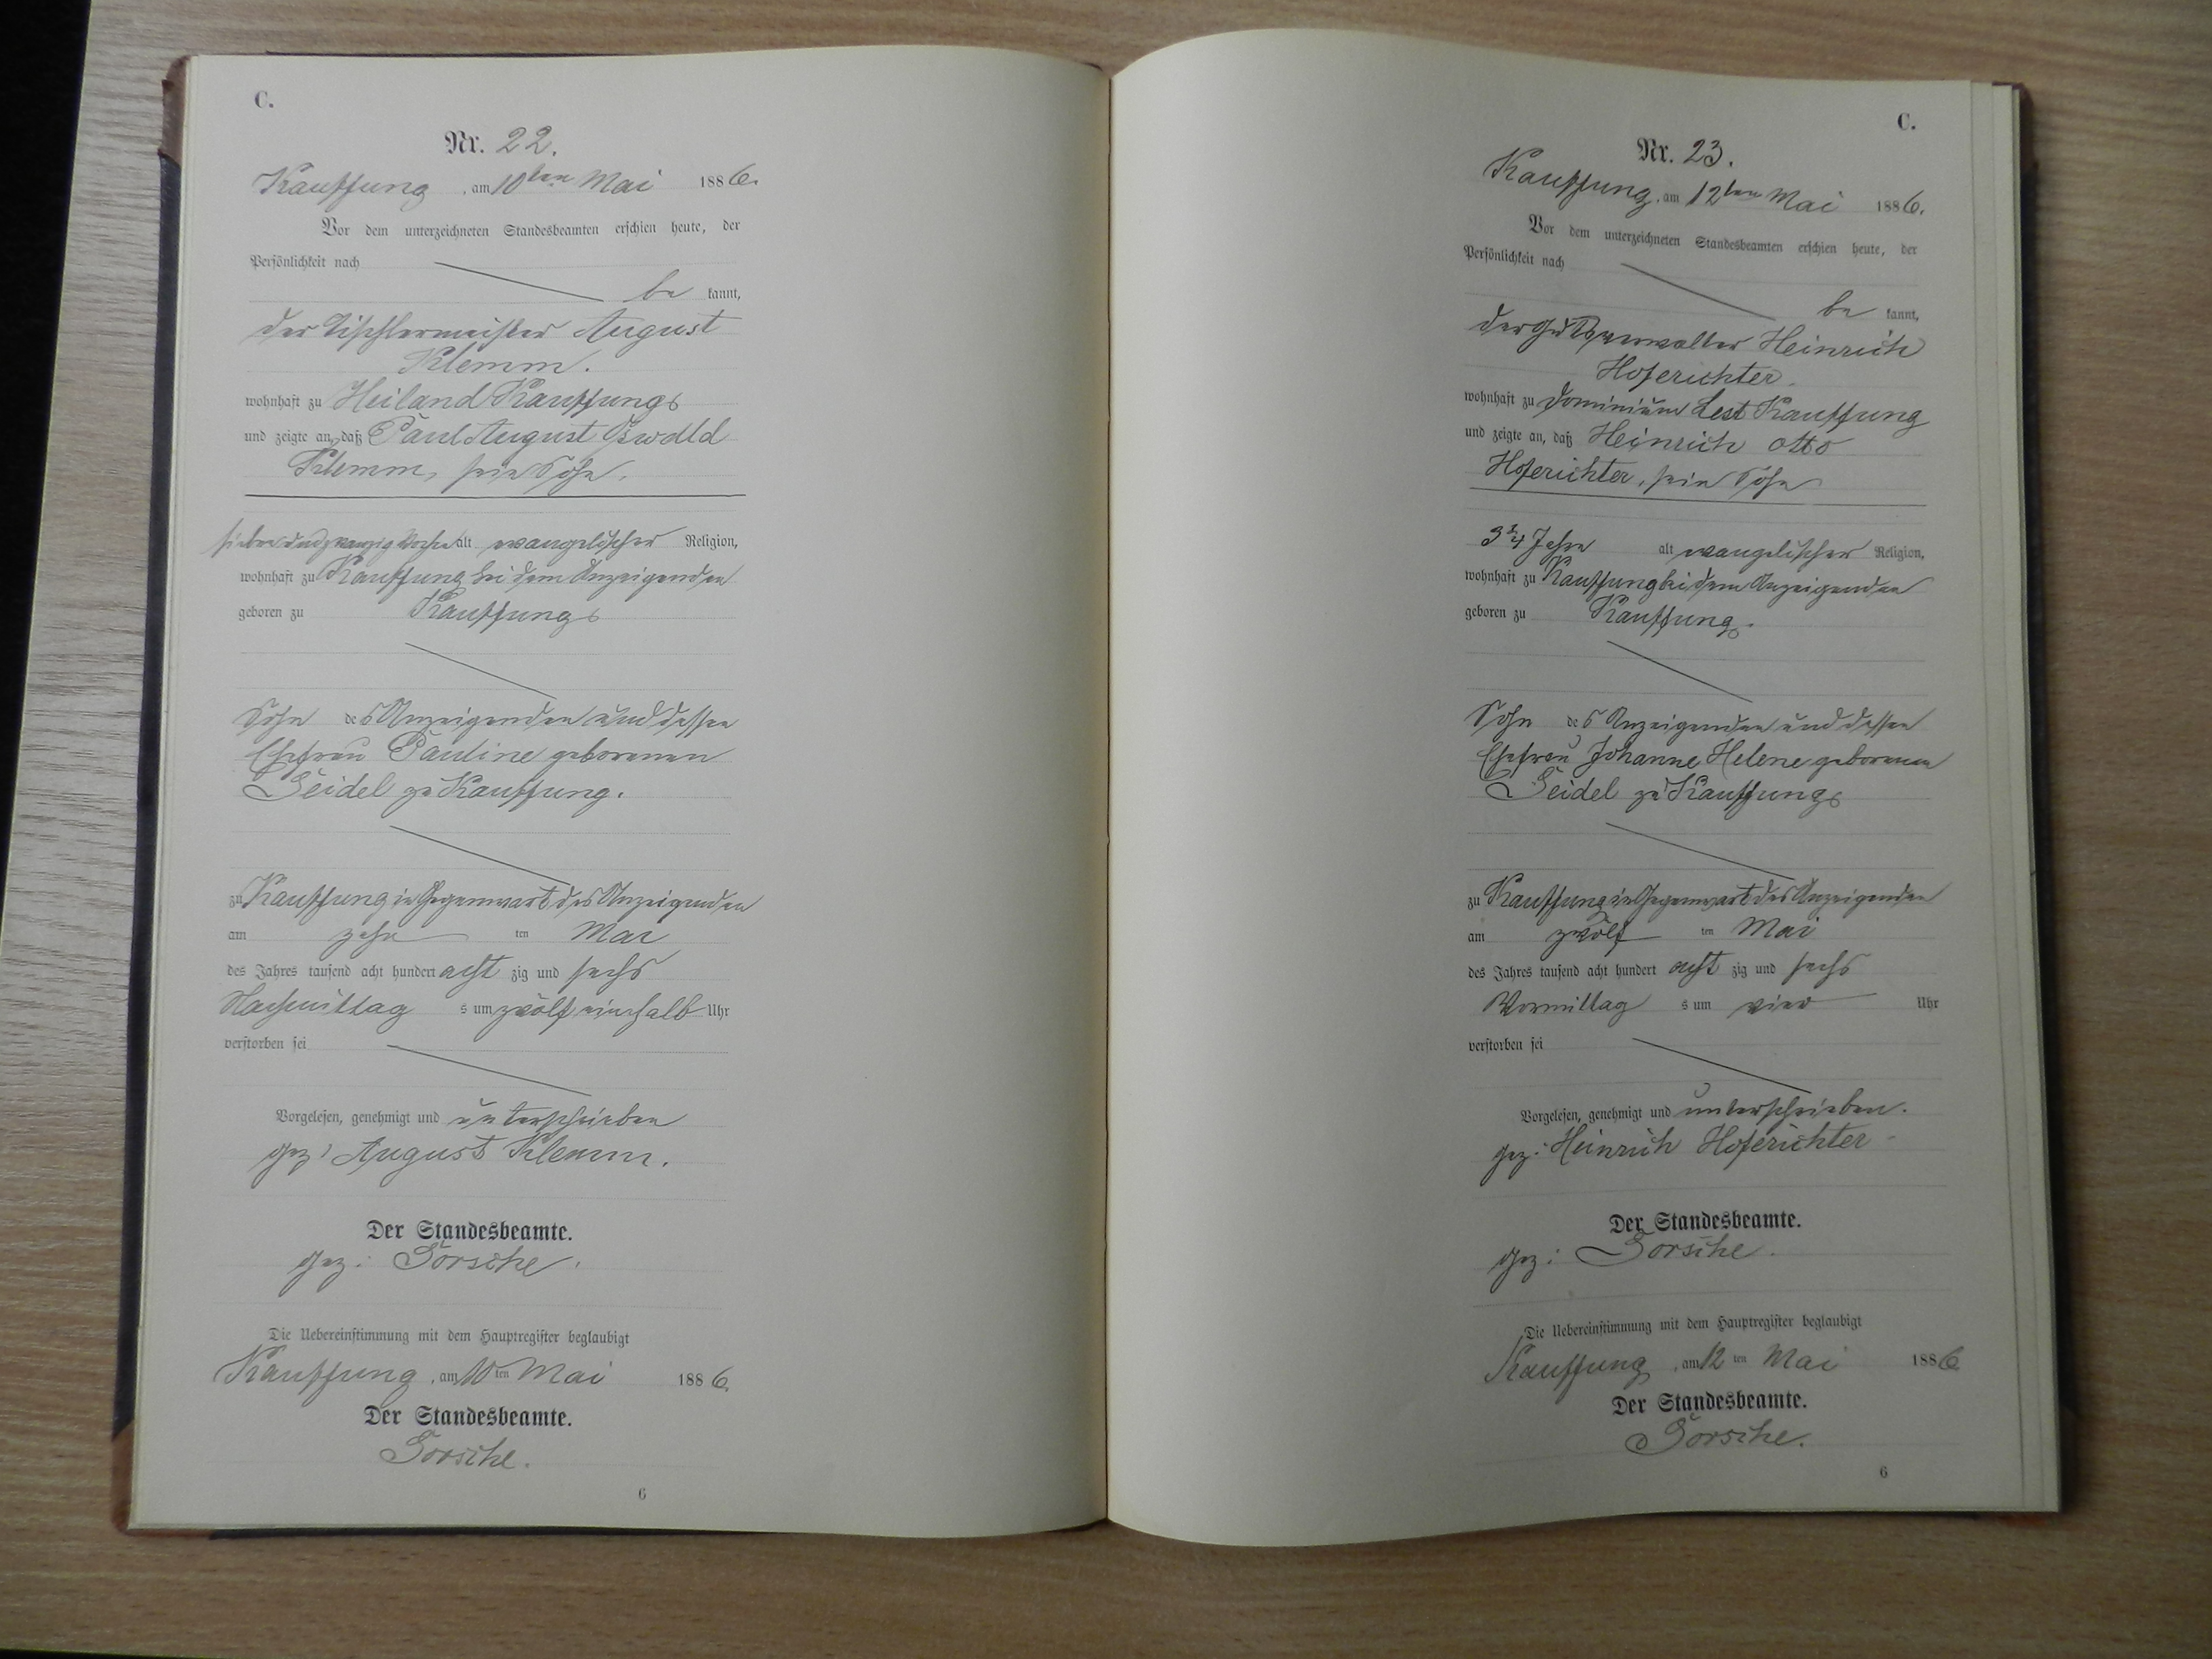 C.
Nr. 22.
Kauffung, am 10ten Mai 1886.
Vor dem unterzeichneten Standesbeamten erschien heute, der
Persönlichkeit nach
be kannt,
der Tischlermeister August
Klemm.
wohnhaft zu Heiland Kauffung
und zeigte an, daß Paul August Oswald
Klemm, sein Sohn.
sieben und zwanzig Wochen alt evangelischer Religion,
wohnhaft zu Kauffung bei dem Anzeigenden
geboren zu Kauffung
Sohn des Anzeigenden und dessen
Ehefrau Pauline geborenen
Seidel zu Kauffung.
zu Kauffung in Gegenwart des Anzeigenden
am zehn ten Mai
des Jahres tausend acht hundert acht zig und sechs
Nachmittag s um zwölf einhalb Uhr
verstorben sei
Vorgelesen, genehmigt und unterschrieben
gez: August Klemm.
Der Standesbeamte.
gez:
Die Uebereinstimmung mit dem Hauptregister beglaubigt
Kauffung, am 10ten Mai 1886.
Der Standesbeamte.
6
C.
Nr. 23.
Kauffung, am 12ten Mai 1886.
Vor dem unterzeichneten Standesbeamten erschien heute, der
Persönlichkeit nach
be kannt,
der Gutsverwalter Heinrich
Hoferichter.
wohnhaft zu Dominium Lest Kauffung
und zeigte an, daß Heinrich Otto
Hoferichter, sein Sohn
3 3/4 Jahre alt evangelischer Religion,
wohnhaft zu Kauffung bei dem Anzeigenden
geboren zu Kauffung.
Sohn des Anzeigenden und dessen
Ehefrau Johanne Helene geborenen
Seidel zu Kauffung
zu Kauffung in Gegenwart des Anzeigenden
am zwölf ten Mai
des Jahres tausend acht hundert acht zig und sechs
Vormittag s um vier Uhr
verstorben sei
Vorgelesen, genehmigt und unterschrieben.
gez: Heinrich Hoferichter
Der Standesbeamte.
gez:
Die Uebereinstimmung mit dem Hauptregister beglaubigt
Kauffung, am 12ten Mai 1886
Der Standesbeamte.
6